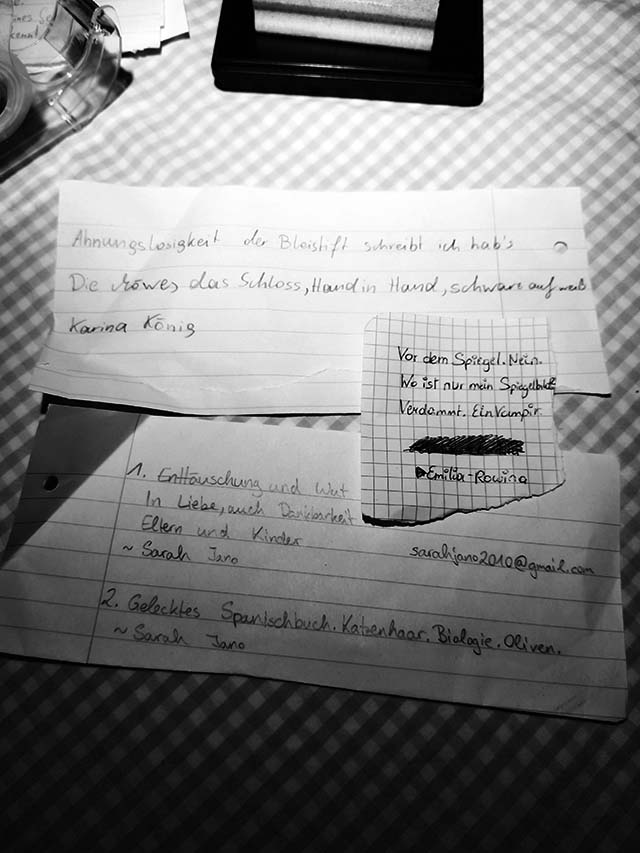 Ahnungslosigkeit der Bleistift schreibt ich hab's
Die Möwe, das Schloss, Hand in Hand, schwarz auf weiß
Karina König
Vor dem Spiegel. Nein.
Wo ist nur mein Spiegelbild?
Verdammt. Ein Vampir.
Emilia-Rowina
1. Enttäuschung und Wut
In Liebe, auch Dankbarkeit
Eltern und Kinder
~ Sarah Jano
sarahjano2010@gmail.com
2. Gelecktes Spanischbuch. Katzenhaar. Biologie. Oliven.
~ Sarah Jano